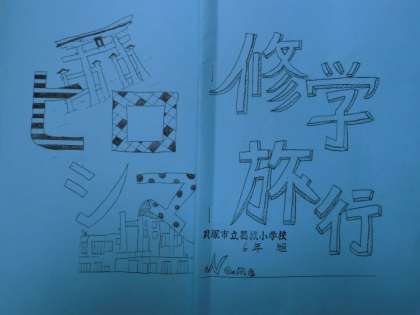 修学
旅行
貝塚市立葛城小学校
6年 組
ヒロ
シマ